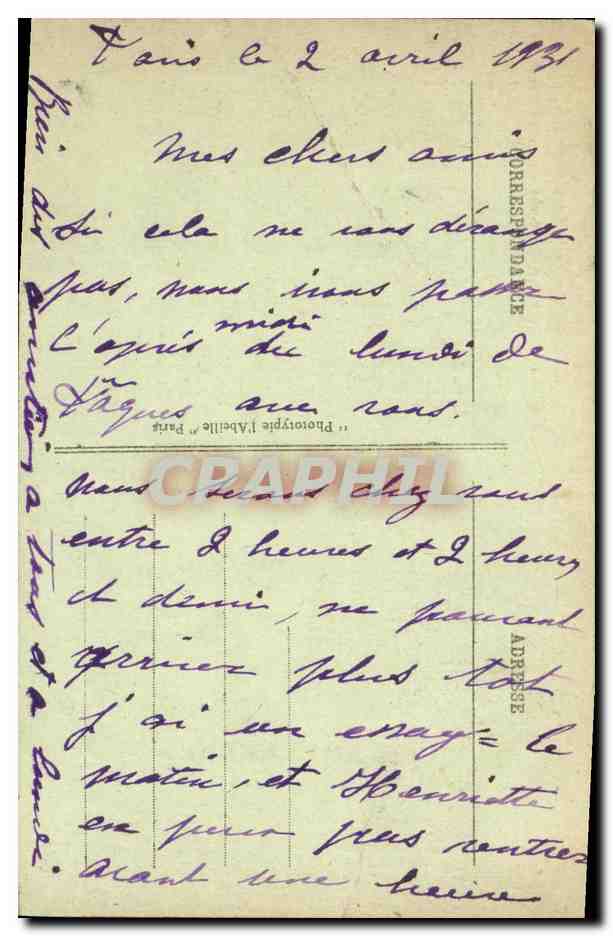 Paris le 2 avril 1931
Mes chers amis
Si cela ne vous dérange
pas, nous irons passer
l'après midi du lundi de
Pâques avec vous.
nous serons chez vous
entre 2 heures et 2 heures
et demi, ne pouvant
arriver plus tot
j'ai un essay= le
matin, et Henriette
ne peux pas rentrer
avant une heure.
Bien des amitiés a tous et a lundi.
CORRESPONDANCE
ADRESSE
"Phototypie l'Abeille" Paris
CRAPHIL